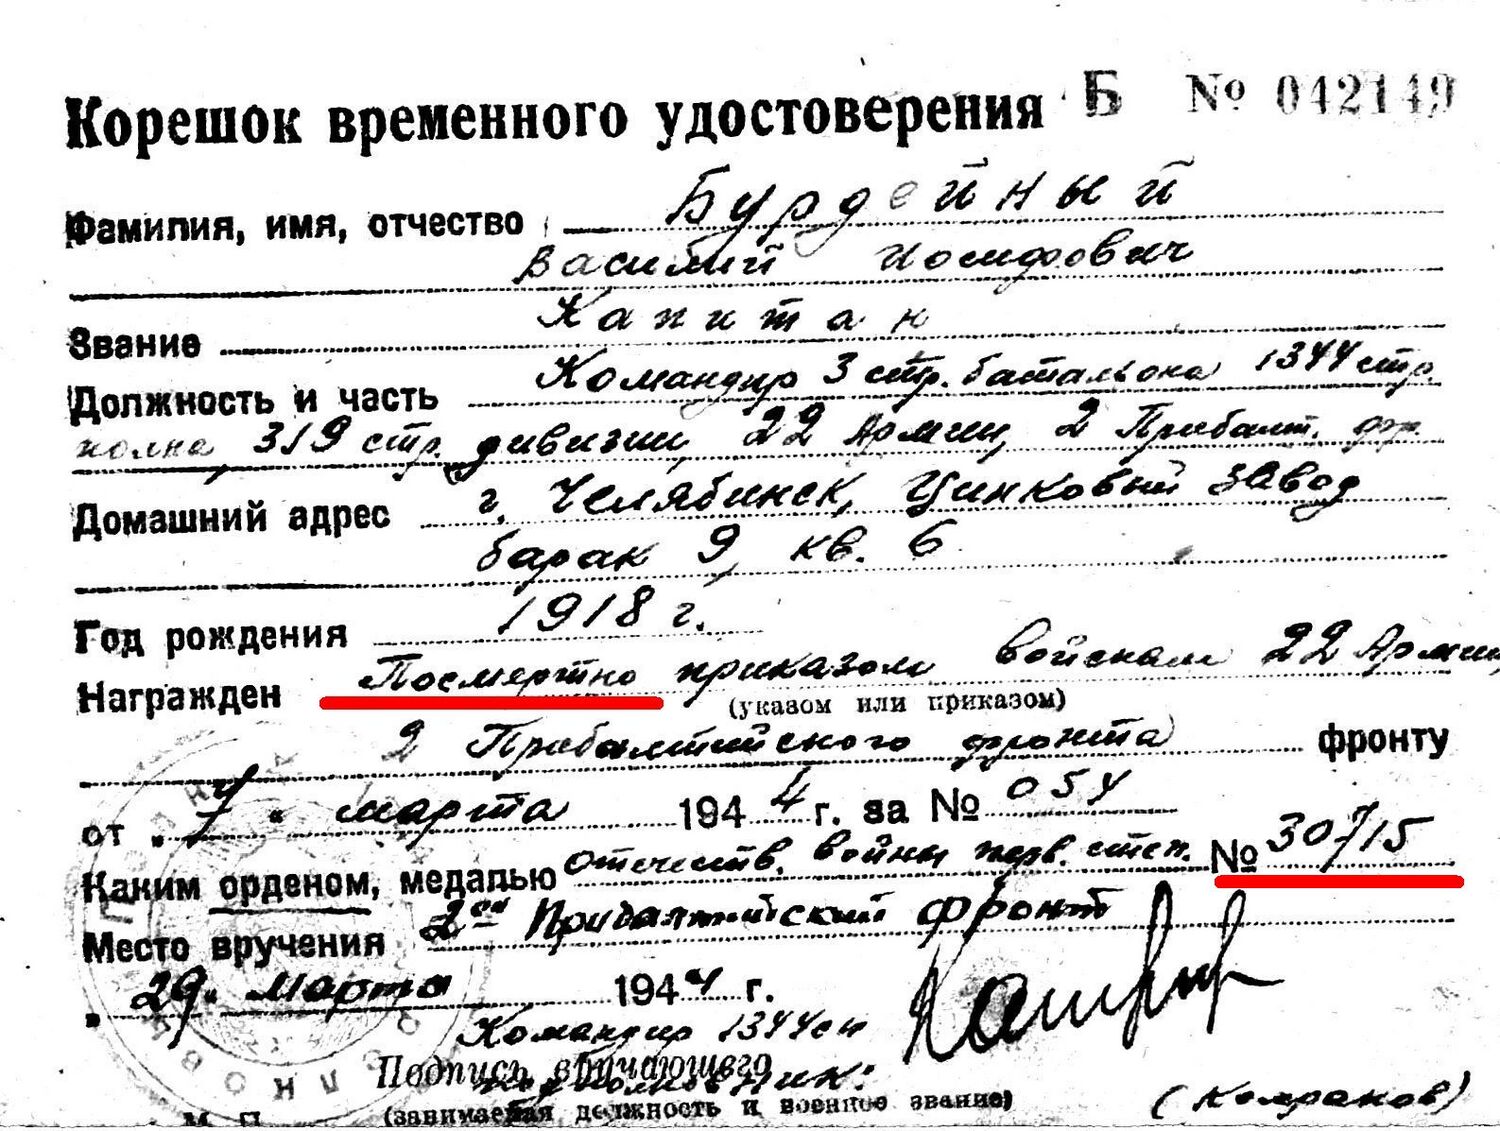 Корешок временного удостоверения Б № 042149
Фамилия, имя, отчество Бурдейный
Василий Иосифович
Звание Капитан
Должность и часть Командир 3 стр. батальона 1344 стр.
полка, 319 стр. дивизии, 22 Армии, 2 Прибалт. фр.
Домашний адрес г. Челябинск, Цинковый завод
барак 9, кв. 6
Год рождения 1918 г.
Награжден Посмертно приказом войскам 22 Армии,
(указом или приказом)
2 Прибалтийского фронта фронту
от „ 7 “ марта 1944 г. за № 054
Каким орденом, медалью отечеств. войны перв. степ. № 30715
Место вручения 2ой Прибалтийский фронт
„ 29 “ марта 1944 г.
Командир 1344 сп
Подпись вручающего
подполковник:
(занимаемая должность и военное звание)
М. П.